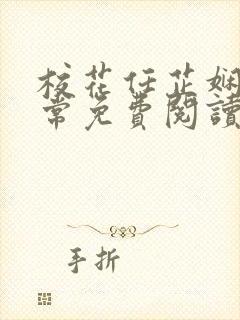 校花任芷娴
常免费阅读
手折